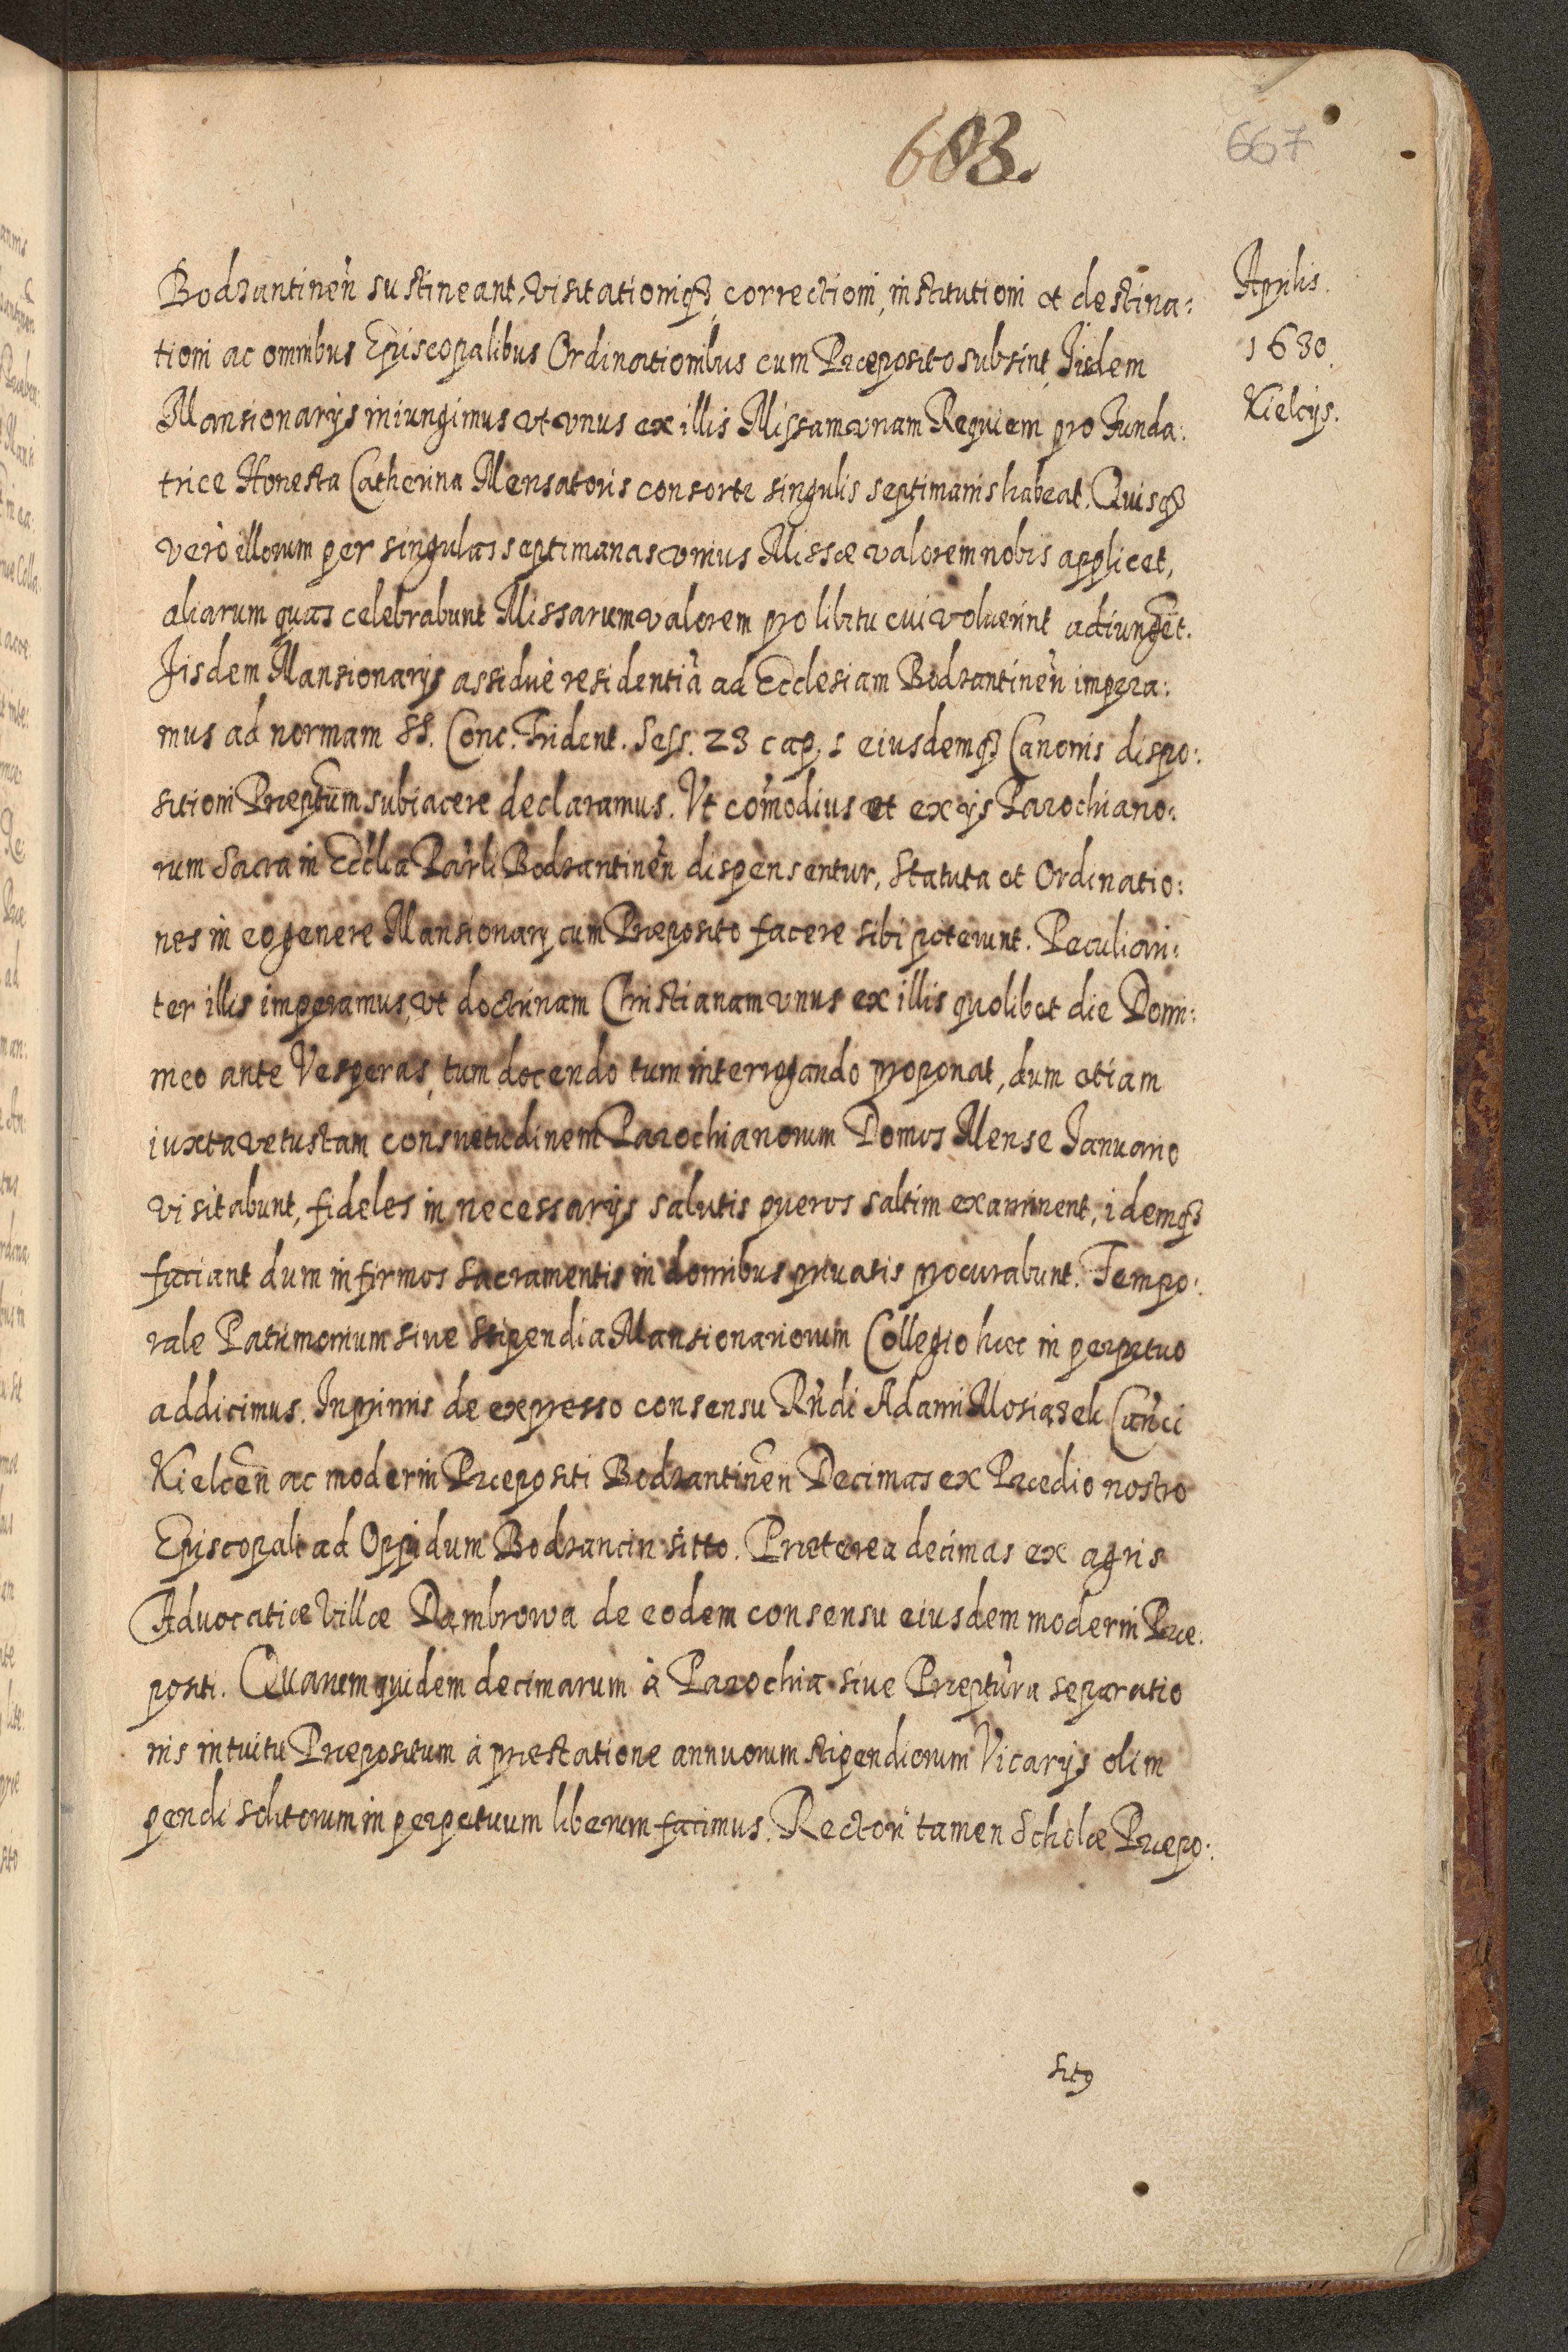 683.
667
Aprilis.
1630.
Kielcijs.
Bodzantineñ sustineant, visitationiq3 correctioni, institutioni et destina:
tioni ac omnibus Episcopalibus Ordinationibus cum Præposito subsint, Iisdem
Mansionarijs iniungimus vt vnus ex illis Missam vnam Requiem pro Funda:
trice Honesta Catherina Mensatoris consorte singulis septimanis habeat. Quisq3
verò illorum per singulas septimanas vnius Missæ valorem nobis applicet,
aliarum quas celebrabunt Missarum valorem pro libitu cui voluerint adiunget.
Iisdem Mansionarijs assiduè residentiã ad Ecclesiam Bodzantineñ impera:
mus ad normam SS. Conc. Trident. Sess. 23 cap. 1 eiusdemq3 Canonis dispo:
sitioni Præptum subiacere declaramus. Vt com̃odius et ex ijs Parochiano:
rum Sacra in Ecclia Parli Bodzantineñ dispensentur, Statuta et Ordinatio:
nes in eo genere Mansionarij cum Præposito facere sibi poterunt. Peculiari:
ter illis imperamus, vt doctrinam Christianam vnus ex illis quolibet die Domi:
nico ante Vesperas, tum docendo tum interrogando proponat, dum etiam
iuxta vetustam consuetudinem Parochianorum Domos Mense Ianuario
visitabunt, fideles in necessarijs salutis pueros saltim examinent, idemq3
faciant dum infirmos Sacramentis in domibus priuatis procurabunt. Tempo:
rale Patrimonium siue Stipendia Mansionariorum Collegio huic in perpetuo
addicimus. Inprimis de expresso consensu Rñdi Adami Mosiążek Cañci
Kielceñ ac moderni Præpositi Bodzantineñ Decimas ex Prædio nostro
Episcopali ad Oppidum Bodzancin sitto. Præterea decimas ex agris
Aduocatiæ Villæ Dąmbrowa de eodem consensu eiusdem moderni Præ:
positi. Quarum quidem decimarum à Parochia siue Præptura separatio
nis intuitu Præpositum à præstatione annuorum stipendiorum Vicarijs olim
pendi solitorum in perpetuum liberum facimus. Rectori tamen Scholæ Præpo:
sitq